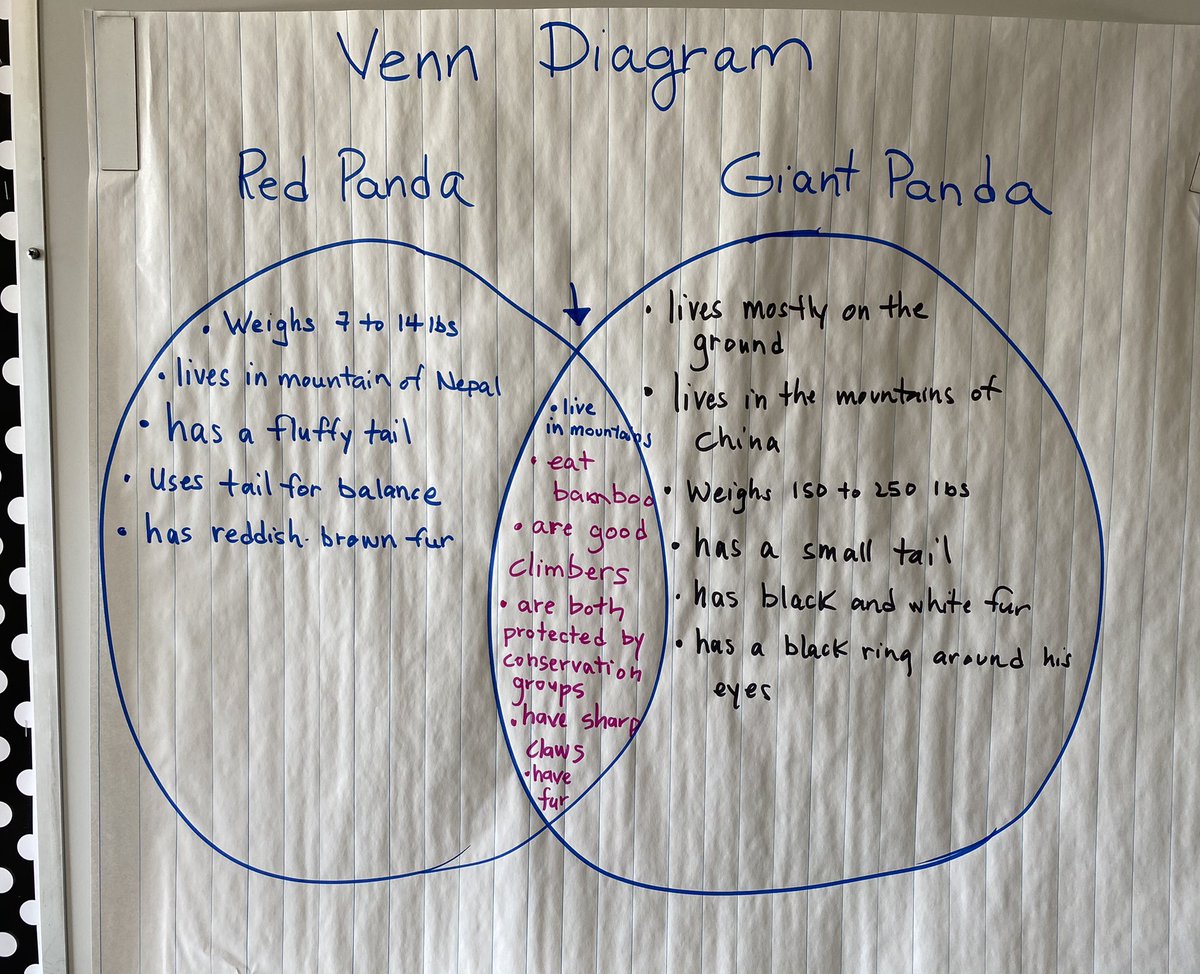 Venn Diagram
Red Panda
Giant Panda
• Weighs 7 to 14 lbs
• lives in mountain of Nepal
• has a fluffy tail
• Uses tail for balance
• has reddish-brown fur
• live
in mountains
• eat
bamboo
• are good
climbers
• are both
protected by
conservation
groups
• have sharp
claws
• have
fur
• lives mostly on the
ground
• lives in the mountains of
China
• Weighs 150 to 250 lbs
• has a small tail
• has black and white fur
• has a black ring around his
eyes